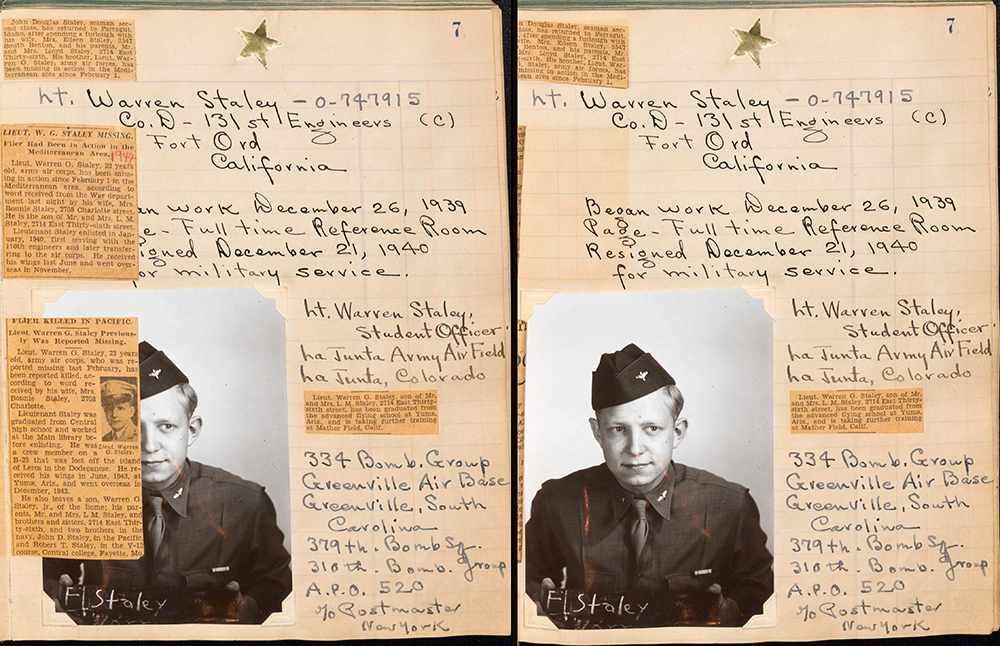 John Douglas Staley, seaman sec-
ond class, has returned to Farragut,
Idaho, after spending a furlough with
his wife, Mrs. Eileen Staley, 3547
South Benton, and his parents, Mr.
and Mrs. Lloyd Staley, 2714 East
Thirty-sixth. His brother, Lieut. War-
ren G. Staley, army air forces, has
been missing in action in the Medi-
terranean area since February 1.
7
Lt. Warren Staley - O-747915
Co. D - 131st Engineers (C)
Fort Ord
California
LIEUT. W. G. STALEY MISSING.
Flier Had Been in Action in the
Mediterranean Area. 1944
Lieut. Warren G. Staley, 22 years
old, army air corps, has been miss-
ing in action since February 1 in the
Mediterranean area, according to
word received from the War depart-
ment last night by his wife, Mrs.
Bonnie Staley, 2708 Charlotte street.
He is the son of Mr. and Mrs. L. M.
Staley, 2714 East Thirty-sixth street.
Lieutenant Staley enlisted in Jan-
uary, 1940, first serving with the
110th engineers and later transfer-
ring to the air corps. He received
his wings last June and went over-
seas in November.
an work December 26, 1939
e - Full time Reference Room
igned December 21, 1940
for military service.
FLIER KILLED IN PACIFIC.
Lieut. Warren G. Staley Previous-
ly Was Reported Missing.
Lieut. Warren G. Staley, 23 years
old, army air corps, who was re-
ported missing last February, has
been reported killed, ac-
cording to word re-
ceived by his wife, Mrs.
Bonnie Staley, 2708
Charlotte.
Lieutenant Staley was
graduated from Central
high school and worked
at the Main library be-
fore enlisting. He was
a crew member on a
B-25 that was lost off the island
of Leros in the Dodecanese. He re-
ceived his wings in June, 1943, at
Yuma, Ariz., and went overseas in
December, 1943.
He also leaves a son, Warren G.
Staley, jr., of the home; his par-
ents, Mr. and Mrs. L. M. Staley, and
brothers and sisters, 2714 East Thir-
ty-sixth, and two brothers in the
navy, John D. Staley, in the Pacific,
and Robert T. Staley, in the V-12
course, Central college, Fayette, Mo.
Lieut. Warren
G. Staley.
Lt. Warren Staley,
Student Officer
La Junta Army Air Field
La Junta, Colorado
Lieut. Warren G. Staley, son of Mr.
and Mrs. L. M. Staley, 2714 East Thirty-
sixth street, has been graduated from
the advanced flying school at Yuma,
Ariz., and is taking further training
at Mather Field, Calif.
334 Bomb. Group
Greenville Air Base
Greenville, South
Carolina
379th. Bomb Sq.
310th. Bomb. Group
A.P.O. 520
c/o Postmaster
New York
Staley
n Douglas Staley, seaman sec-
lass, has returned to Farragut,
after spending a furlough with
fe, Mrs. Eileen Staley, 3547
Benton, and his parents, Mr.
Mrs. Lloyd Staley, 2714 East
-sixth. His brother, Lieut. War-
Staley, army air forces, has
missing in action in the Medi-
ean area since February 1.
7
Lt. Warren Staley - O-747915
Co. D - 131st Engineers (C)
Fort Ord
California
Began work December 26, 1939
Page - Full time Reference Room
Resigned December 21, 1940
for military service.
Lt. Warren Staley,
Student Officer
La Junta Army Air Field
La Junta, Colorado
Lieut. Warren G. Staley, son of Mr.
and Mrs. L. M. Staley, 2714 East Thirty-
sixth street, has been graduated from
the advanced flying school at Yuma,
Ariz., and is taking further training
at Mather Field, Calif.
334 Bomb. Group
Greenville Air Base
Greenville, South
Carolina
379th. Bomb Sq.
310th. Bomb. Group
A.P.O. 520
c/o Postmaster
New York
Staley